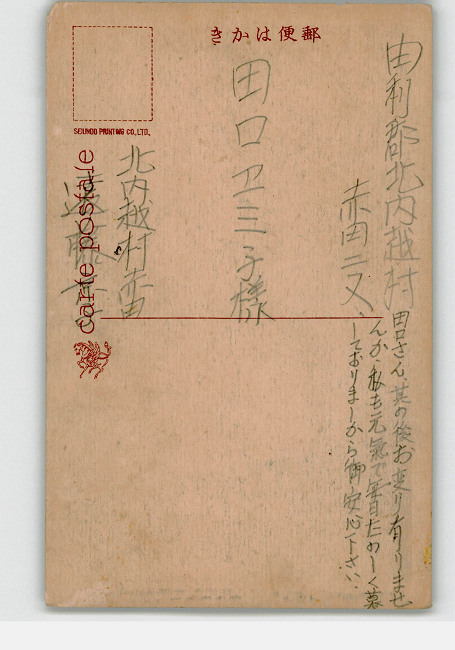 郵便はかき
由利郡北内越村
赤田ニ又
田口エミ子様
北内越村赤田
遠藤
田口さん其の後お変り有りませ
んか、私も元氣で毎日たのしく暮
しておりますから御安心下さい、
SEIUNDO PRINTING CO., LTD.
carte postale